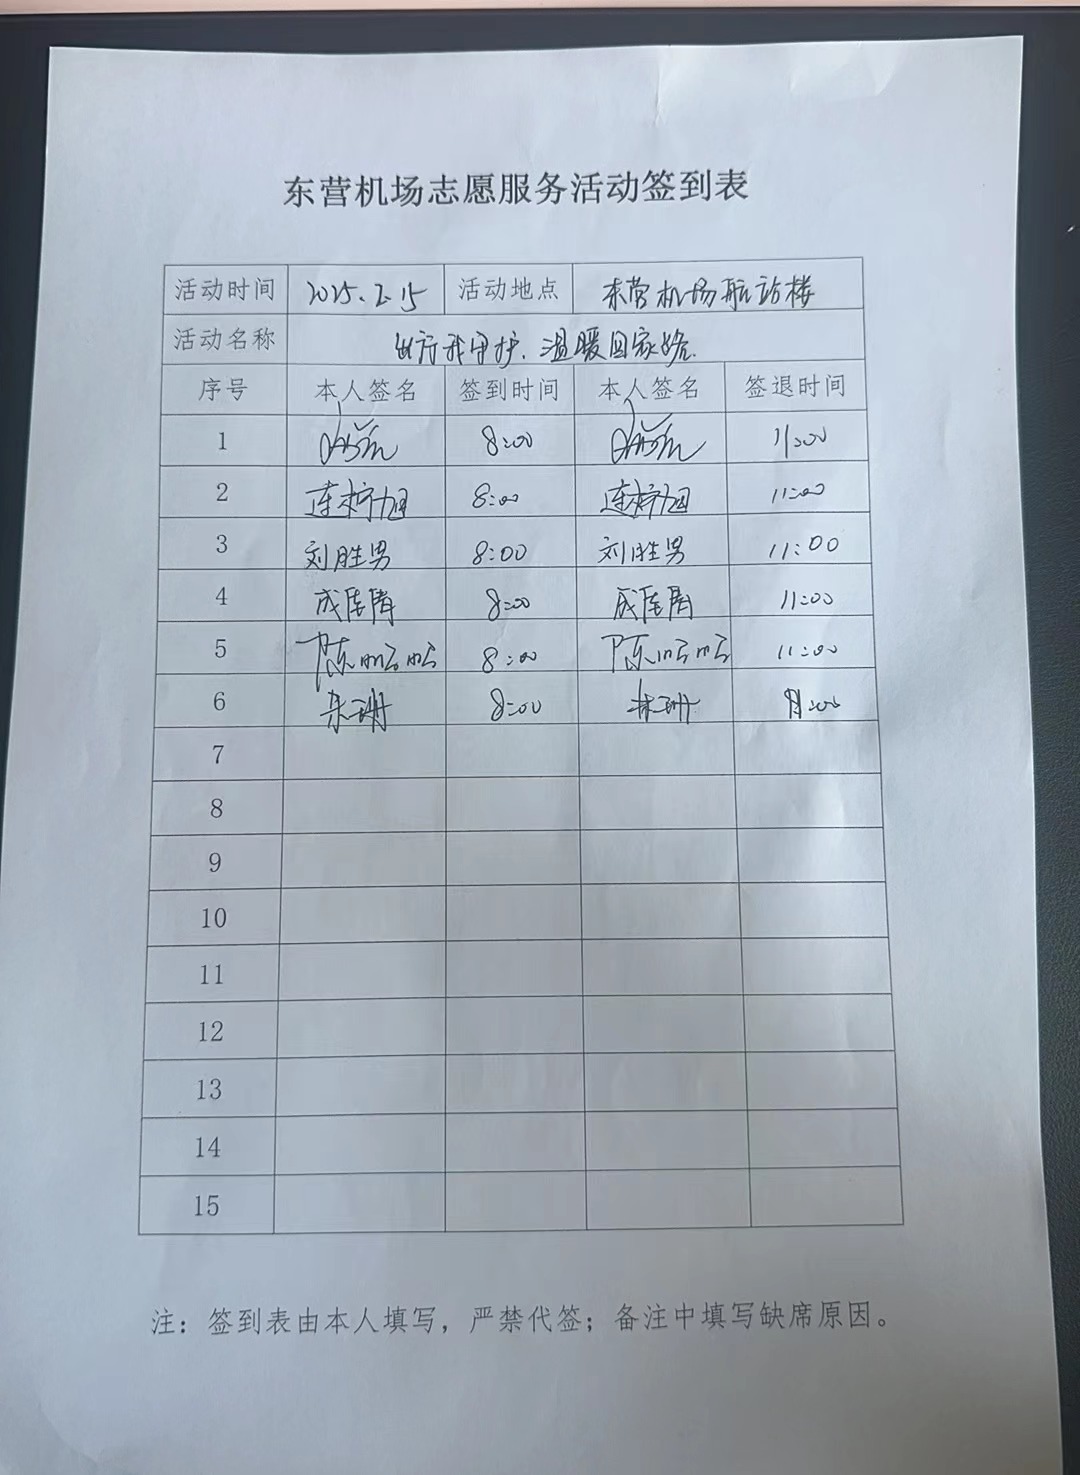 东营机场志愿服务活动签到表
活动时间 2025.2.15 活动地点 东营机场航站楼
活动名称 出行我守护.温暖回家路.
序号 本人签名 签到时间 本人签名 签退时间
1 8:00 11:00
2 连柠旭 8:00 连柠旭 11:00
3 刘胜男 8:00 刘胜男 11:00
4 8:00 11:00
5 陈 8:00 陈 11:00
6 朱珊 8:00 朱珊 :00
7
8
9
10
11
12
13
14
15
注：签到表由本人填写，严禁代签；备注中填写缺席原因。